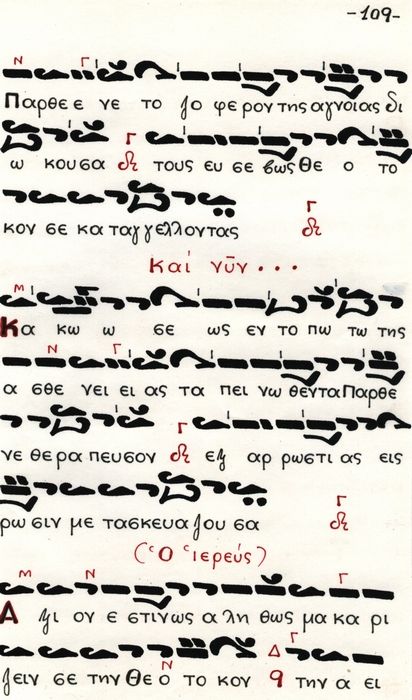 -109-
Ν Γ
Παρθε ε νε το ζο φε ρον της αγνοιας δι
Γ
ω κουσα τους ευ σε βως Θε ο το
Γ
κον σε κα ταγγελλοντας
Καί νῦν...
Μ
Κα κω ω σε ως εν το πω τω της
Ν Γ
α σθε νει ει ας τα πει νω θεντα Παρθε
Γ
νε θε ρα πευσον εξ αρ ρωστι ας εις
Γ
ρω σιν με τασκευα ζου σα
(Ὁ ἱερεύς)
Μ Ν Γ
Α ξι ον ε στιν ως α λη θως μα κα ρι
Δ Γ
ζειν σε την Θε ο το κον την α ει
Ν